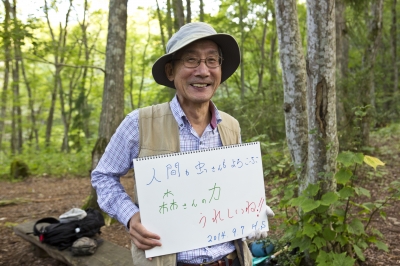 人間が虫さんもよろこぶ
森さんの力
うれしいね!!
2014 9.7